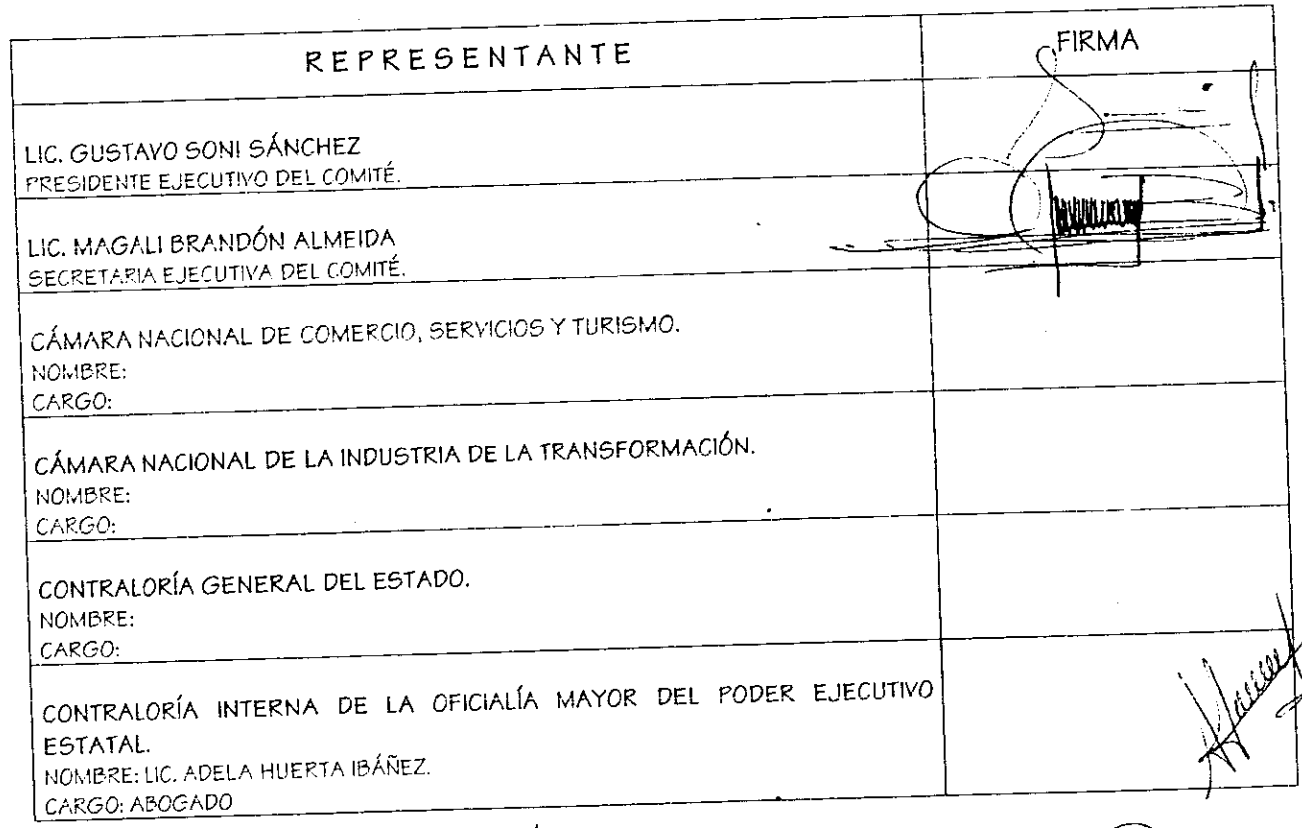 REPRESENTANTE
FIRMA
LIC. GUSTAVO SONI SÁNCHEZ
PRESIDENTE EJECUTIVO DEL COMITÉ.
LIC. MAGALI BRANDÓN ALMEIDA
SECRETARIA EJECUTIVA DEL COMITÉ.
CÁMARA NACIONAL DE COMERCIO, SERVICIOS Y TURISMO.
NOMBRE:
CARGO:
CÁMARA NACIONAL DE LA INDUSTRIA DE LA TRANSFORMACIÓN.
NOMBRE:
CARGO:
CONTRALORÍA GENERAL DEL ESTADO.
NOMBRE:
CARGO:
CONTRALORÍA INTERNA DE LA OFICIALÍA MAYOR DEL PODER EJECUTIVO
ESTATAL.
NOMBRE: LIC. ADELA HUERTA IBÁÑEZ.
CARGO: ABOGADO